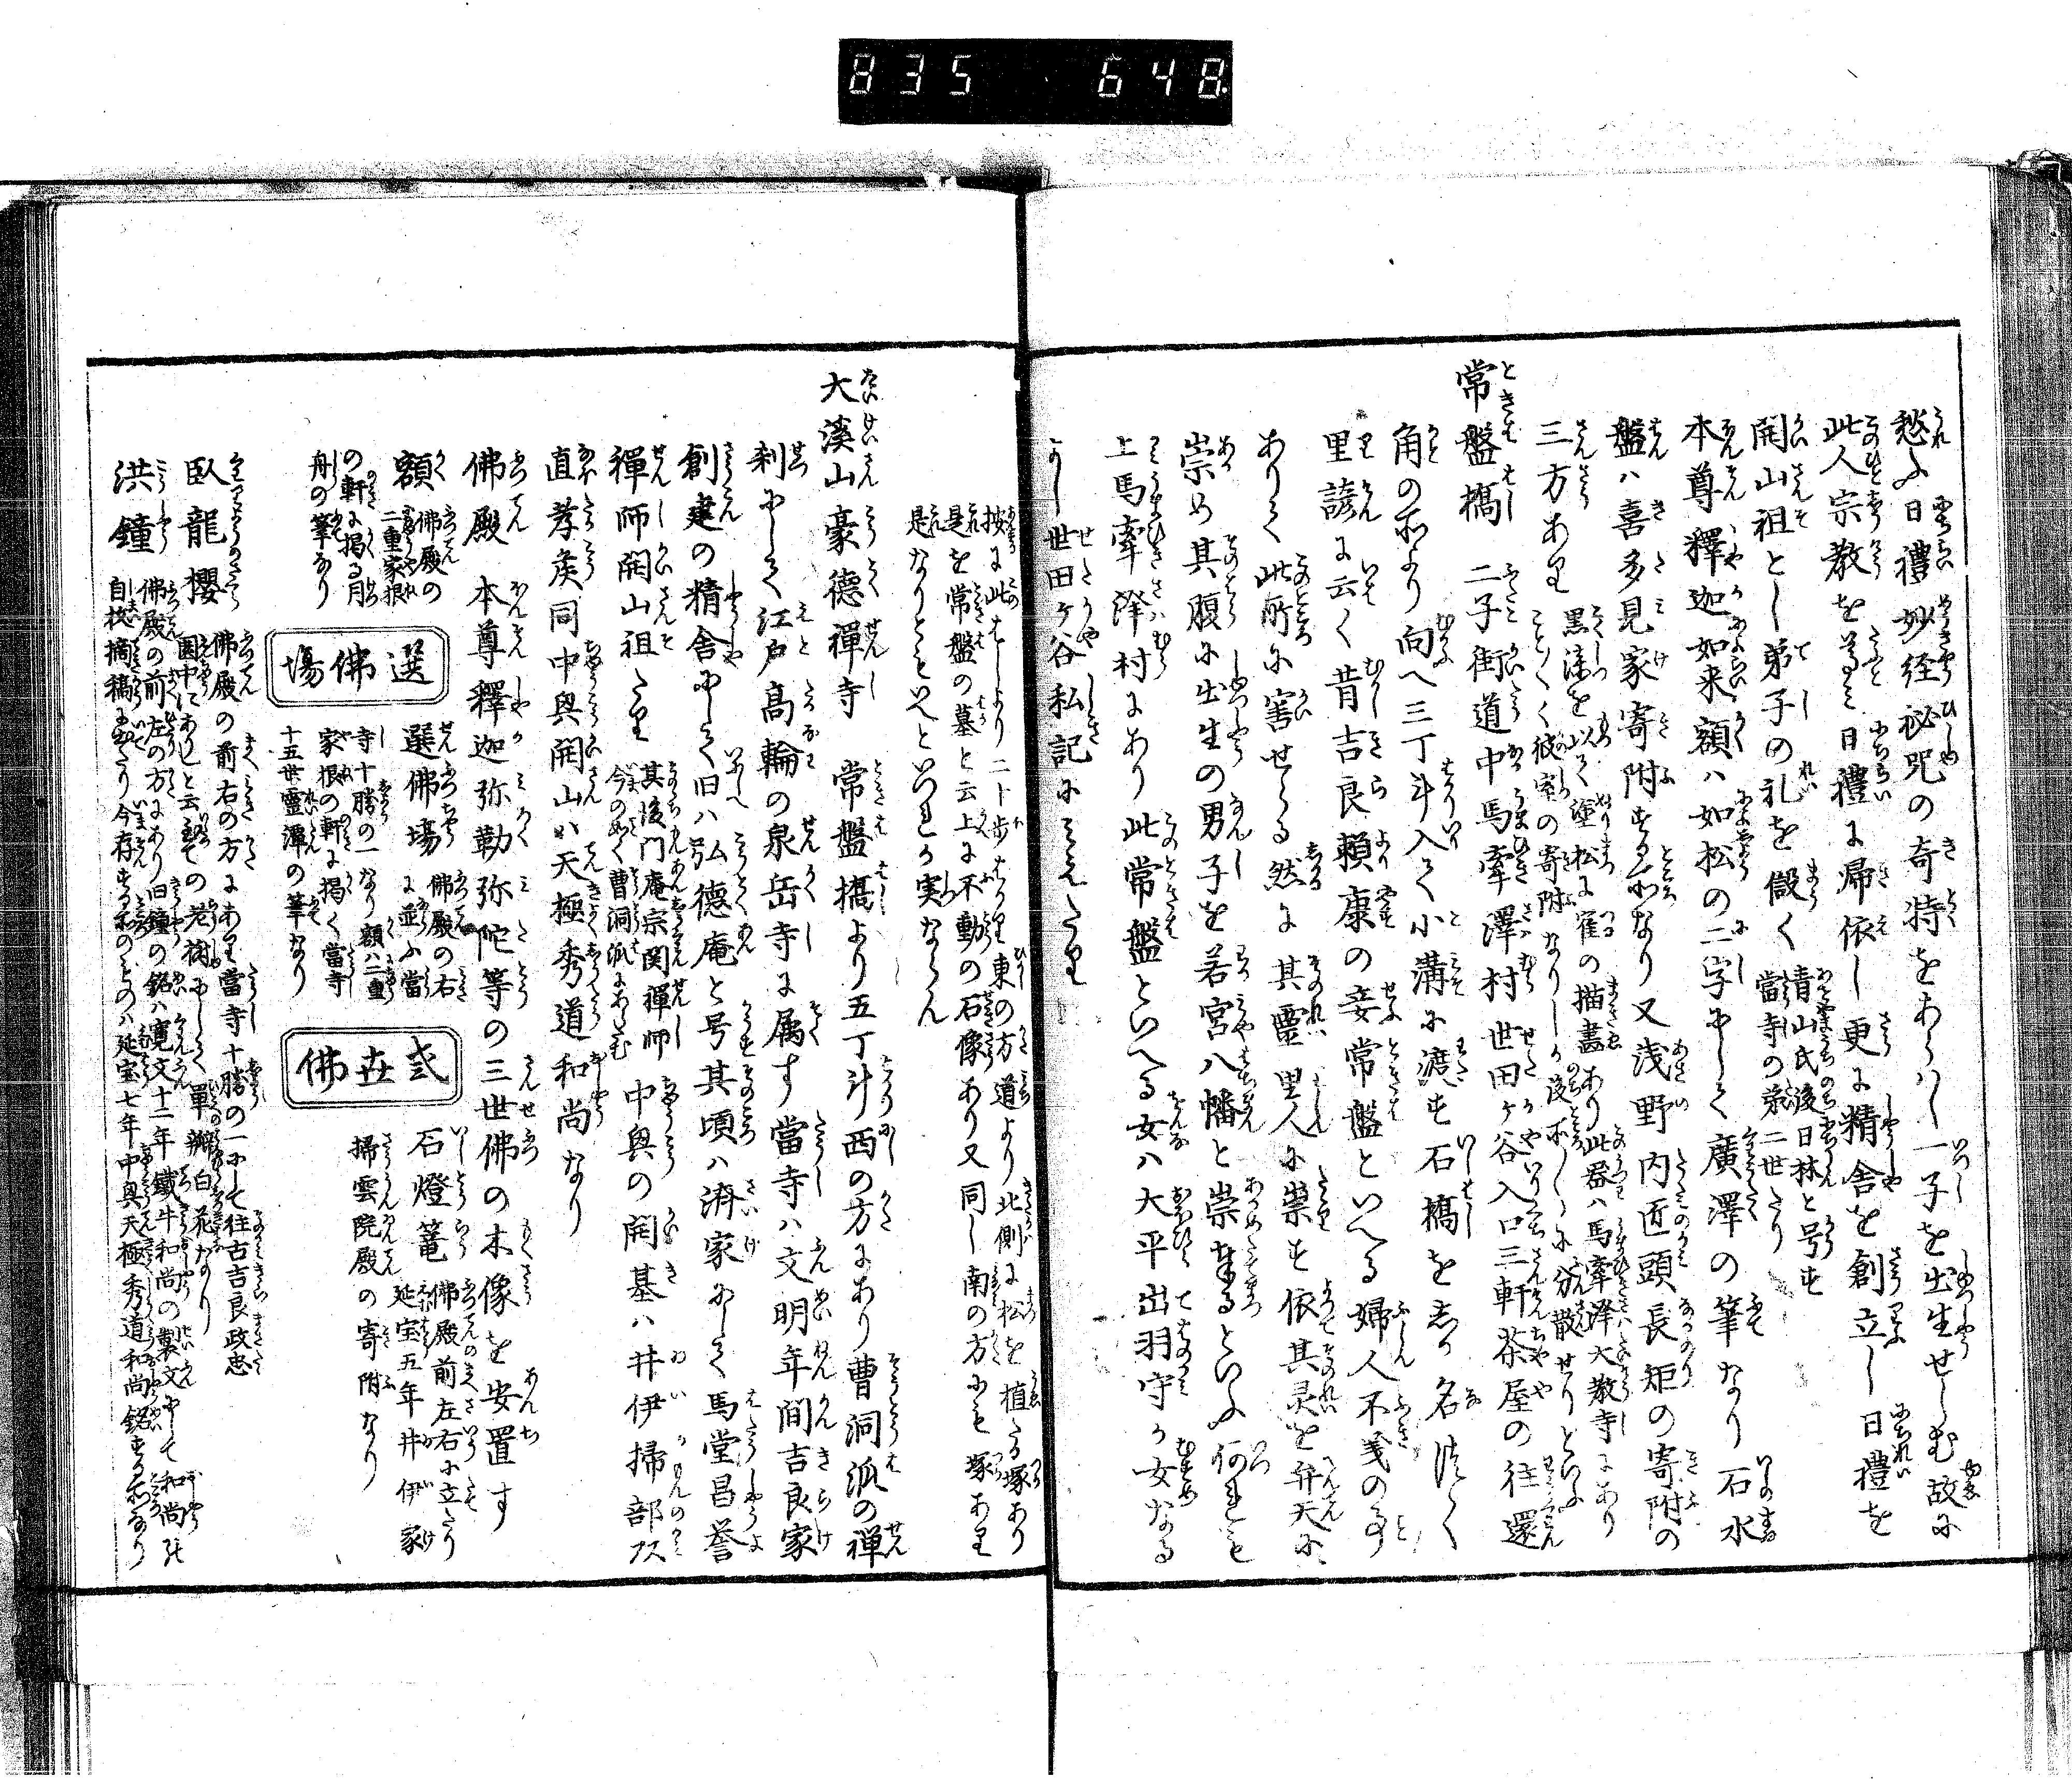 835 648
愁ふ日禮妙経祕咒の奇特をあらハし一子を出生せしむ故に
此人宗教を尊み日禮に帰依し更に精舎を創立し日禮を
開山祖とし弟子の礼を設く
青山氏後日林と号す
當寺の第二世たり
本尊釋迦如来額ハ如松の二字にして廣澤の筆なり石水
盤ハ喜多見家寄附する所なり又浅野内匠頭長矩の寄附の
三方あり
黒漆を以て塗松に雀の描畵あり此器ハ馬牽澤大教寺にあり
ことく彼室の寄附なりしか後所々に分散せりといふ
常盤橋 二子街道中馬牽澤村世田ヶ谷入口三軒茶屋の往還
角の所より向へ三丁斗入て小溝に渡す石橋をしか名つく
里諺に云く昔吉良頼康の妾常盤といへる婦人不義の事
ありて此所に害せらる然に其靈里人に祟す依其灵を弁天に
崇め其腹に出生の男子を若宮八幡と崇奉るといふ何れも
上馬牽澤村にあり此常盤といへる女ハ大平出羽守か女なる
よし世田ヶ谷私記にみえたり
按に此はしより二十歩はかり東の方道より北側に松を植たる塚あり
是を常盤の墓と云上に不動の石像あり又同し南の方にも塚あり
是なりともいへといつれか実ならん
大溪山豪德禪寺 常盤橋より五丁斗西の方にあり曹洞派の禅
刹にして江戸髙輪の泉岳寺に属す當寺ハ文明年間吉良家
創建の精舎にして旧ハ弘德庵と号其頃ハ濟家にして馬堂昌誉
禪師開山祖たり
其後門庵宗関禪師
今のめく曹洞派にあらたむ
中興の開基ハ井伊掃部頭
直孝矦同中興開山ハ天極秀道和尚なり
佛殿 本尊釋迦弥勒弥陀等の三世佛の木像を安置す
額
佛殿の
二重家根
の軒に掲る月
舟の筆なり
選佛場
選佛場
佛殿の右
に並ふ當
寺十勝の一なり額ハ二重
家根の軒に掲く當寺
十五世靈潭の筆なり
弎世佛
石燈篭
佛殿前左右に立たり
延宝五年井伊家
掃雲院殿の寄附なり
臥龍櫻
佛殿の前右の方にあり當寺十勝の一にして往古吉良政忠
園中にありしと云るの老樹にして單瓣白花なり
洪鐘
佛殿の前左の方にあり旧鐘の銘ハ寛文十二年鐵牛和尚の製文にして和尚の
自枝摘稿に出たり今存する所のものハ延宝七年中興天極秀道和尚銘する所なり